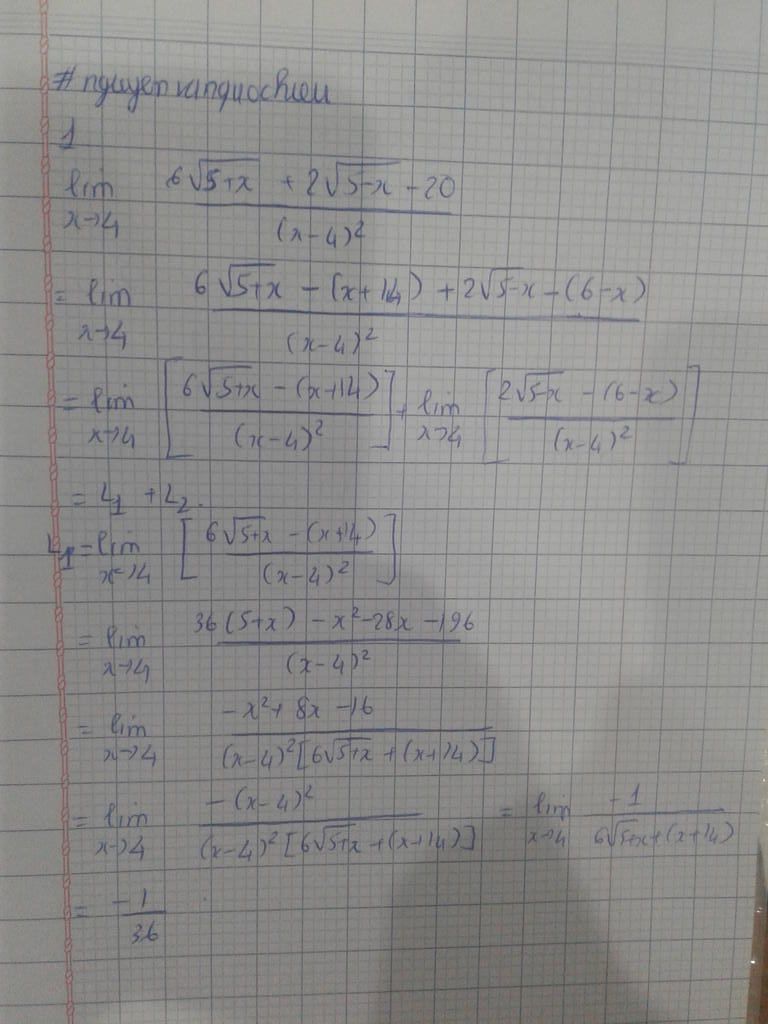 #nguyenvanquochieu
1
lim x→4 (6√(5+x) + 2√(5-x) - 20) / (x-4)²
= lim x→4 (6√(5+x) - (x+14) + 2√(5-x) - (6-x)) / (x-4)²
= lim x→4 [(6√(5+x) - (x+14)) / (x-4)²] + lim x→4 [(2√(5-x) - (6-x)) / (x-4)²]
= L₁ + L₂.
L₁ = lim x→4 [(6√(5+x) - (x+14)) / (x-4)²]
= lim x→4 (36(5+x) - x² - 28x - 196) / (x-4)²
= lim x→4 (-x² + 8x - 16) / ((x-4)² [6√(5+x) + (x+14)])
= lim x→4 (-(x-4)²) / ((x-4)² [6√(5+x) + (x+14)]) = lim x→4 (-1) / (6√(5+x) + (x+14))
= -1 / 36